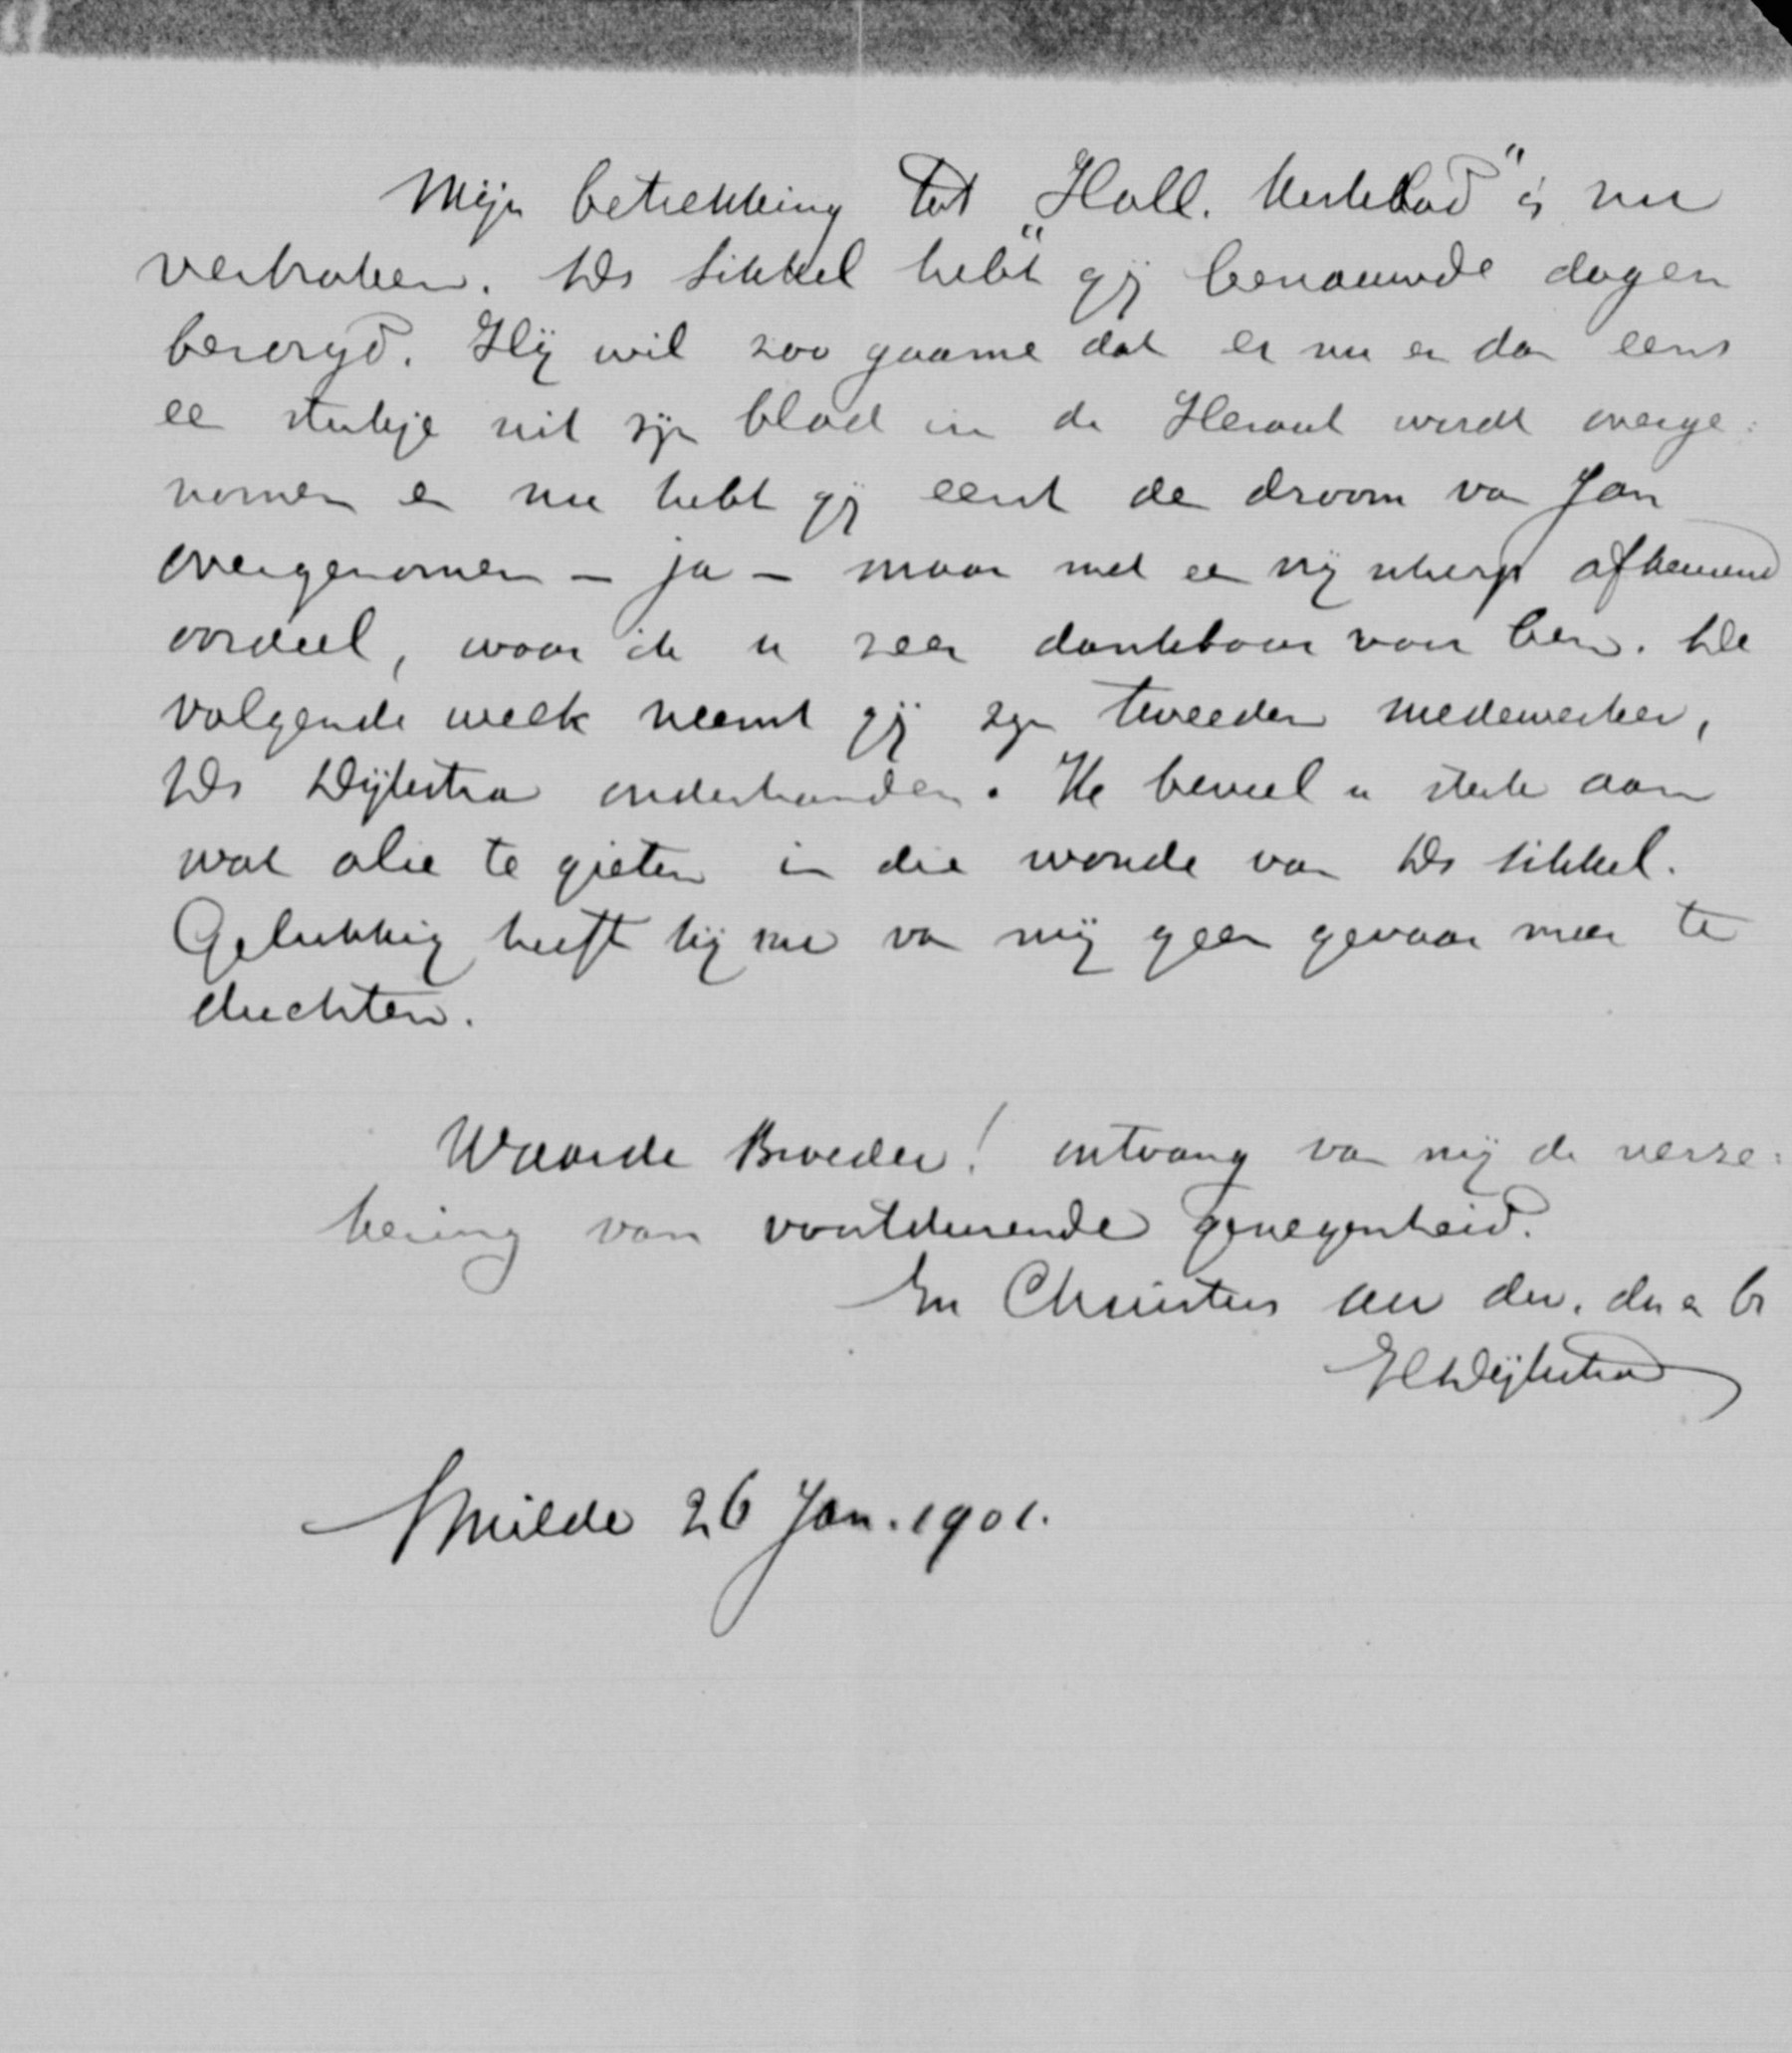 Mijn betrekking tot „Holl. Kerkblad" is nu
verbroken. Ds Sikkel hebt gij benauwde dagen
bezorgd. Hij wil zoo gaarne dat er nu en dan eens
een stukje uit zijn blad in de Heraut wordt overge=
nomen en nu hebt gij eerst de droom van Jan
overgenomen – ja – maar met een vrij scherp afkeurend
oordeel, waar ik u zeer dankbaar voor ben. De
volgende week neemt gij zijn tweeden medewerker,
Ds Dijkstra onderhanden. Ik beveel u sterk aan
wat olie te gieten in die wonde van Ds Sikkel.
Gelukkig heeft hij nu van mij geen gevaar meer te
duchten.
Waarde Broeder! ontvang van mij de verze=
kering van voortdurende genegenheid.
In Christus uw dw. dn en br
H Dijkstra
Smilde 26 Jan. 1901.